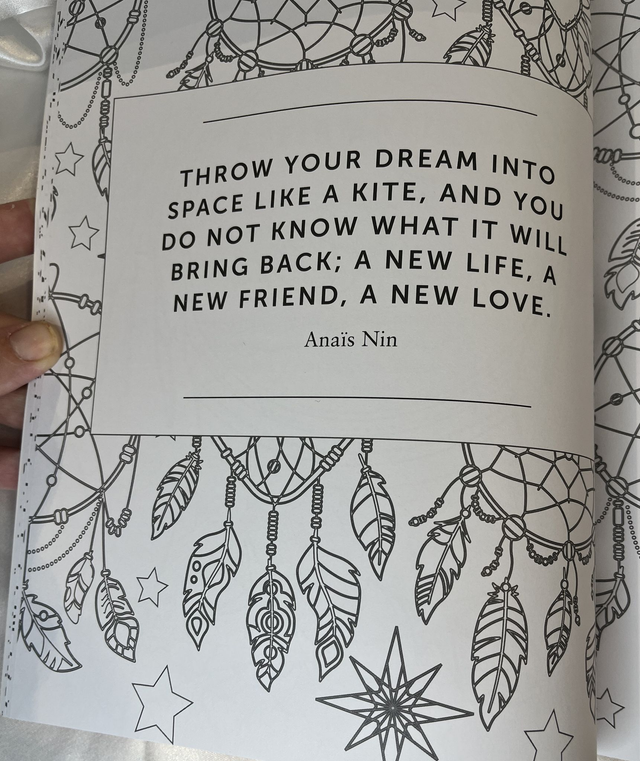 THROW YOUR DREAM INTO
SPACE LIKE A KITE, AND YOU
DO NOT KNOW WHAT IT WILL
BRING BACK; A NEW LIFE, A
NEW FRIEND, A NEW LOVE.
Anaïs Nin